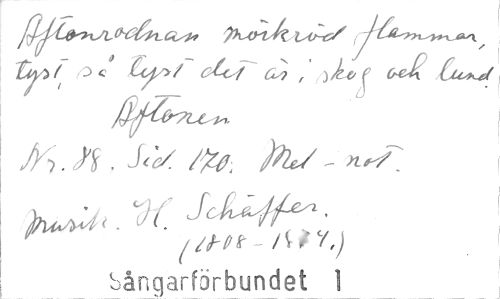 Aftonrodnan mörkröd flammar,
tyst, så tyst det är i skog och lund.
Aftonen
Nr. 88. Sid. 170. Mel-not.
Musik. H. Schäffer.
(1808-1874.)
Sångarförbundet 1